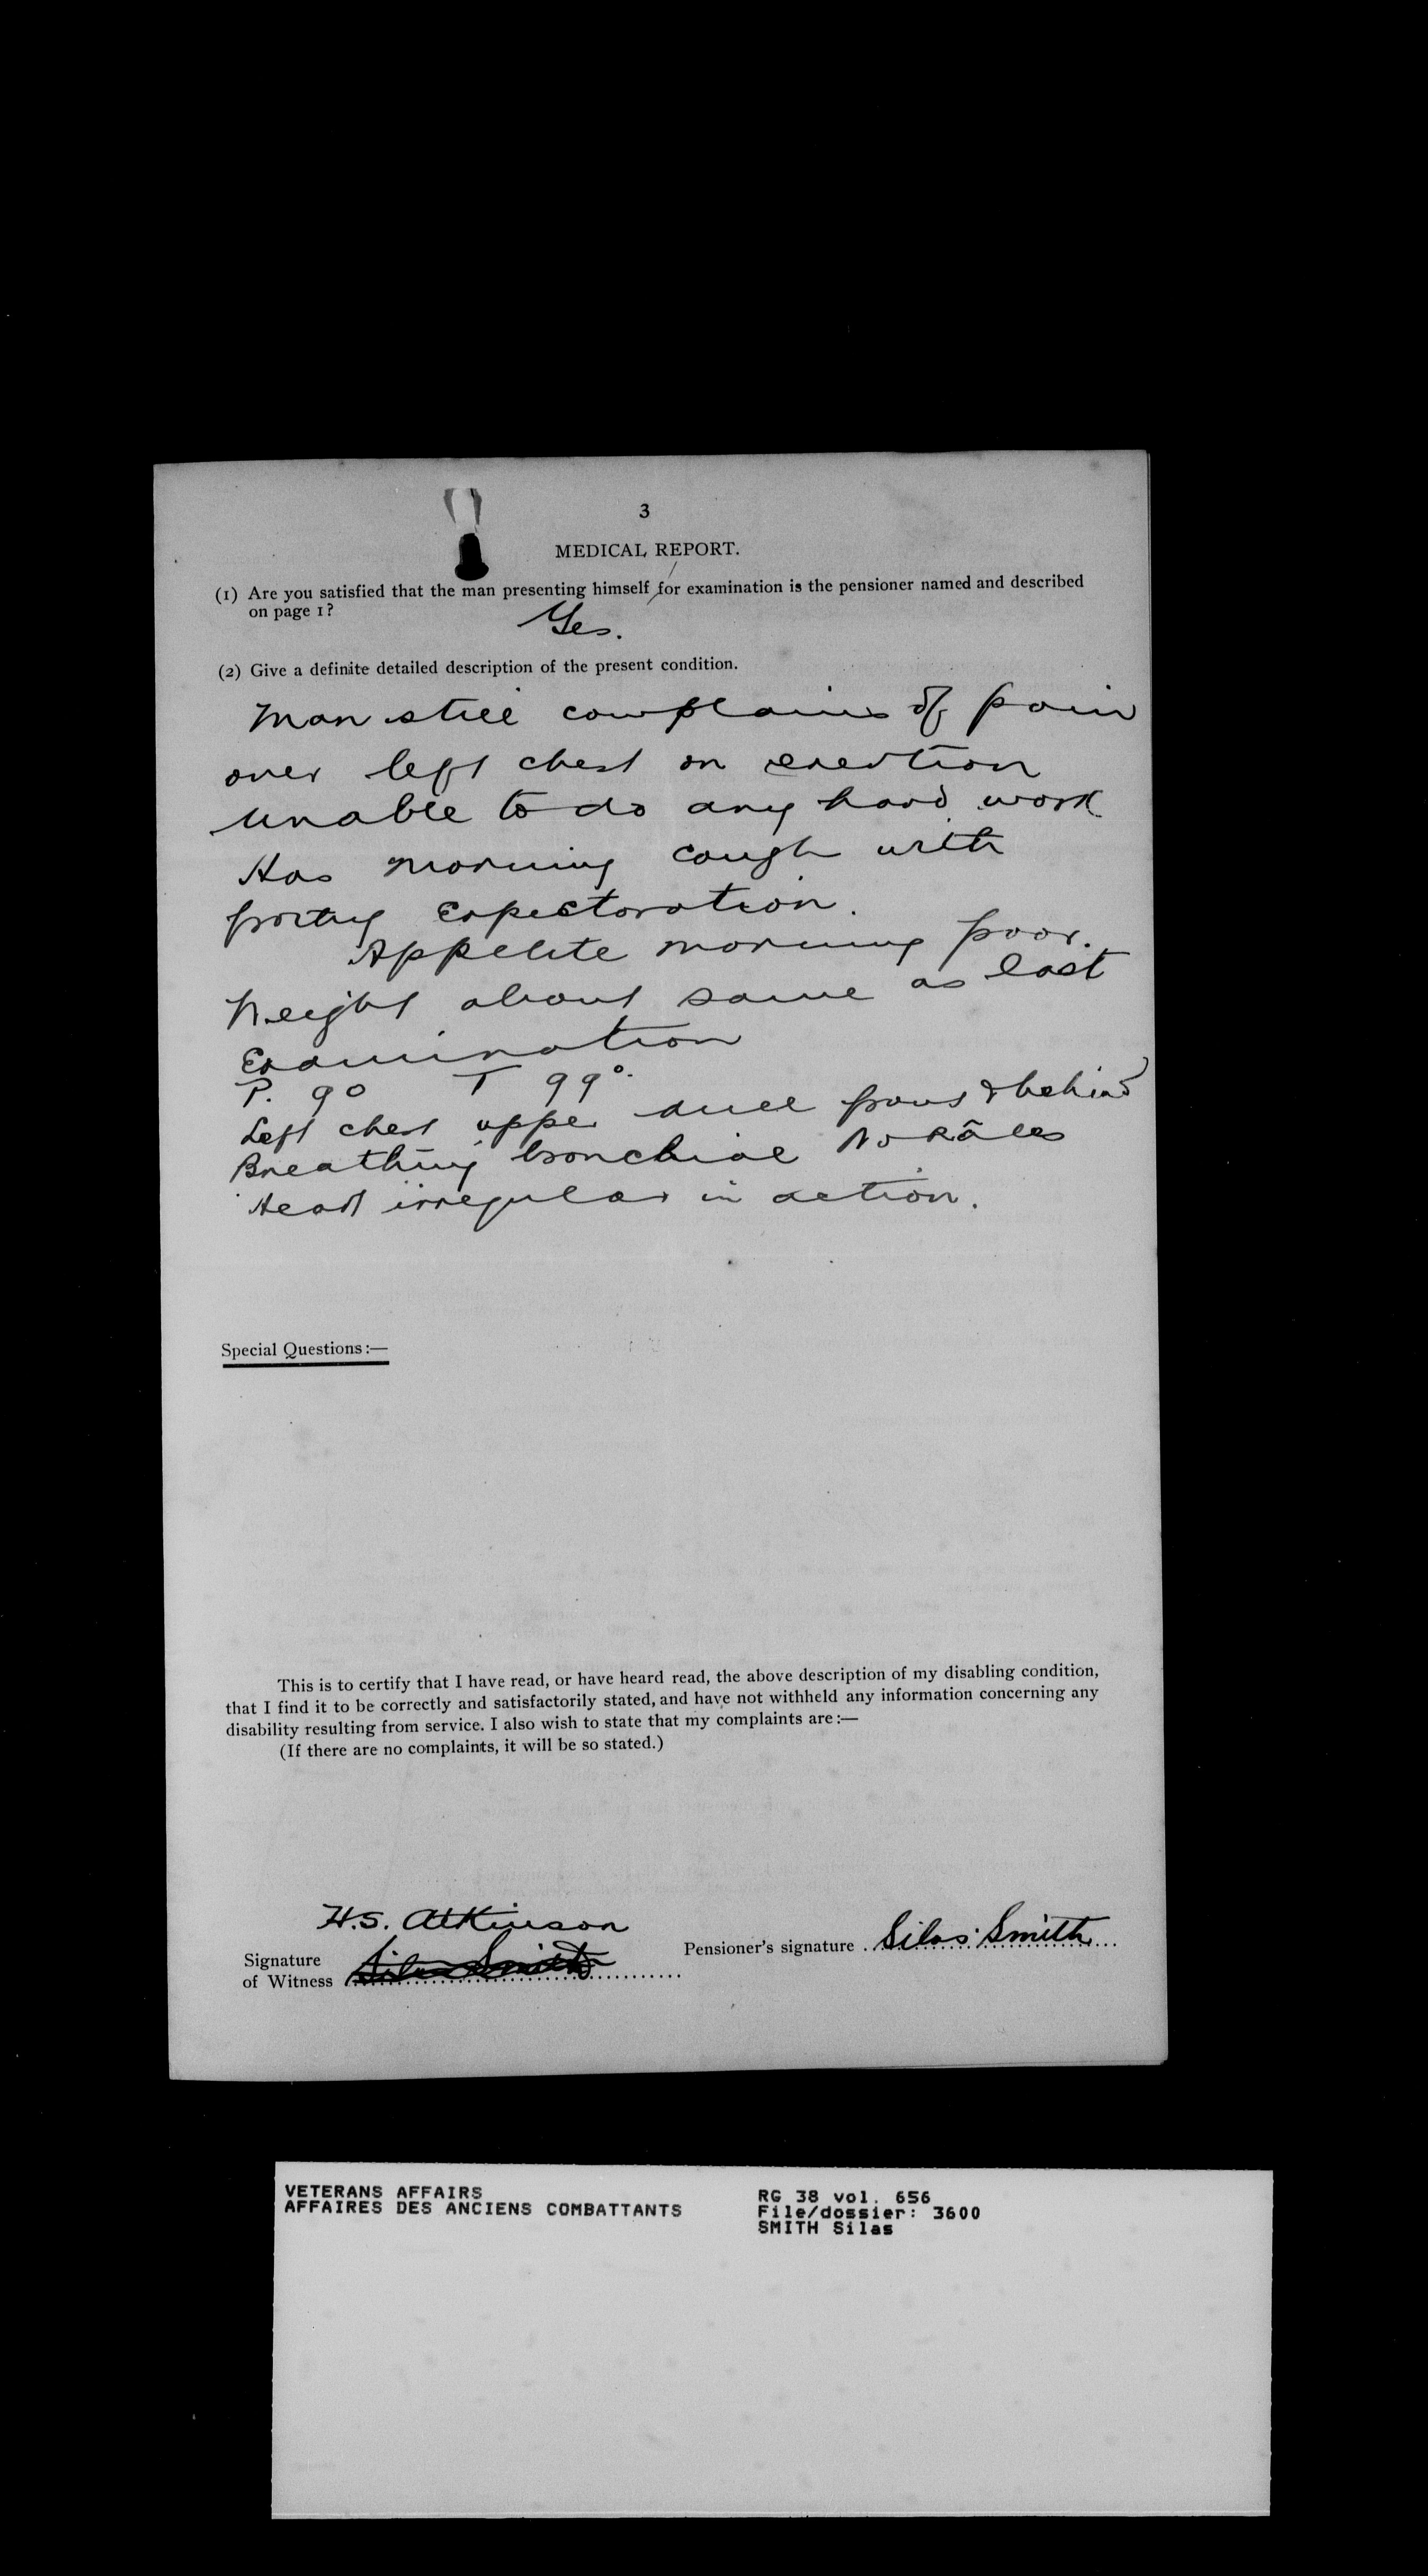 3
MEDICAL REPORT.
(1) Are you satisfied that the man presenting himself for examination is the pensioner named and described
on page 1?
Yes.
(2) Give a definite detailed description of the present condition.
Man still complains of pain
over left chest on exertion
unable to do any hard work
Has morning cough with
frothy expectoration.
Appetite morning poor.
Weight about same as last
Examination
P. 90 T 99°.
Left chest upper dull front & behind
Breathing bronchial No Râles
Heart irregular in action.
Special Questions:—
This is to certify that I have read, or have heard read, the above description of my disabling condition,
that I find it to be correctly and satisfactorily stated, and have not withheld any information concerning any
disability resulting from service. I also wish to state that my complaints are:—
(If there are no complaints, it will be so stated.)
H.S. Atkinson
Signature
of Witness Silas Smith
Pensioner's signature Silas Smith
VETERANS AFFAIRS
AFFAIRES DES ANCIENS COMBATTANTS
RG 38 vol. 656
File/dossier: 3600
SMITH Silas